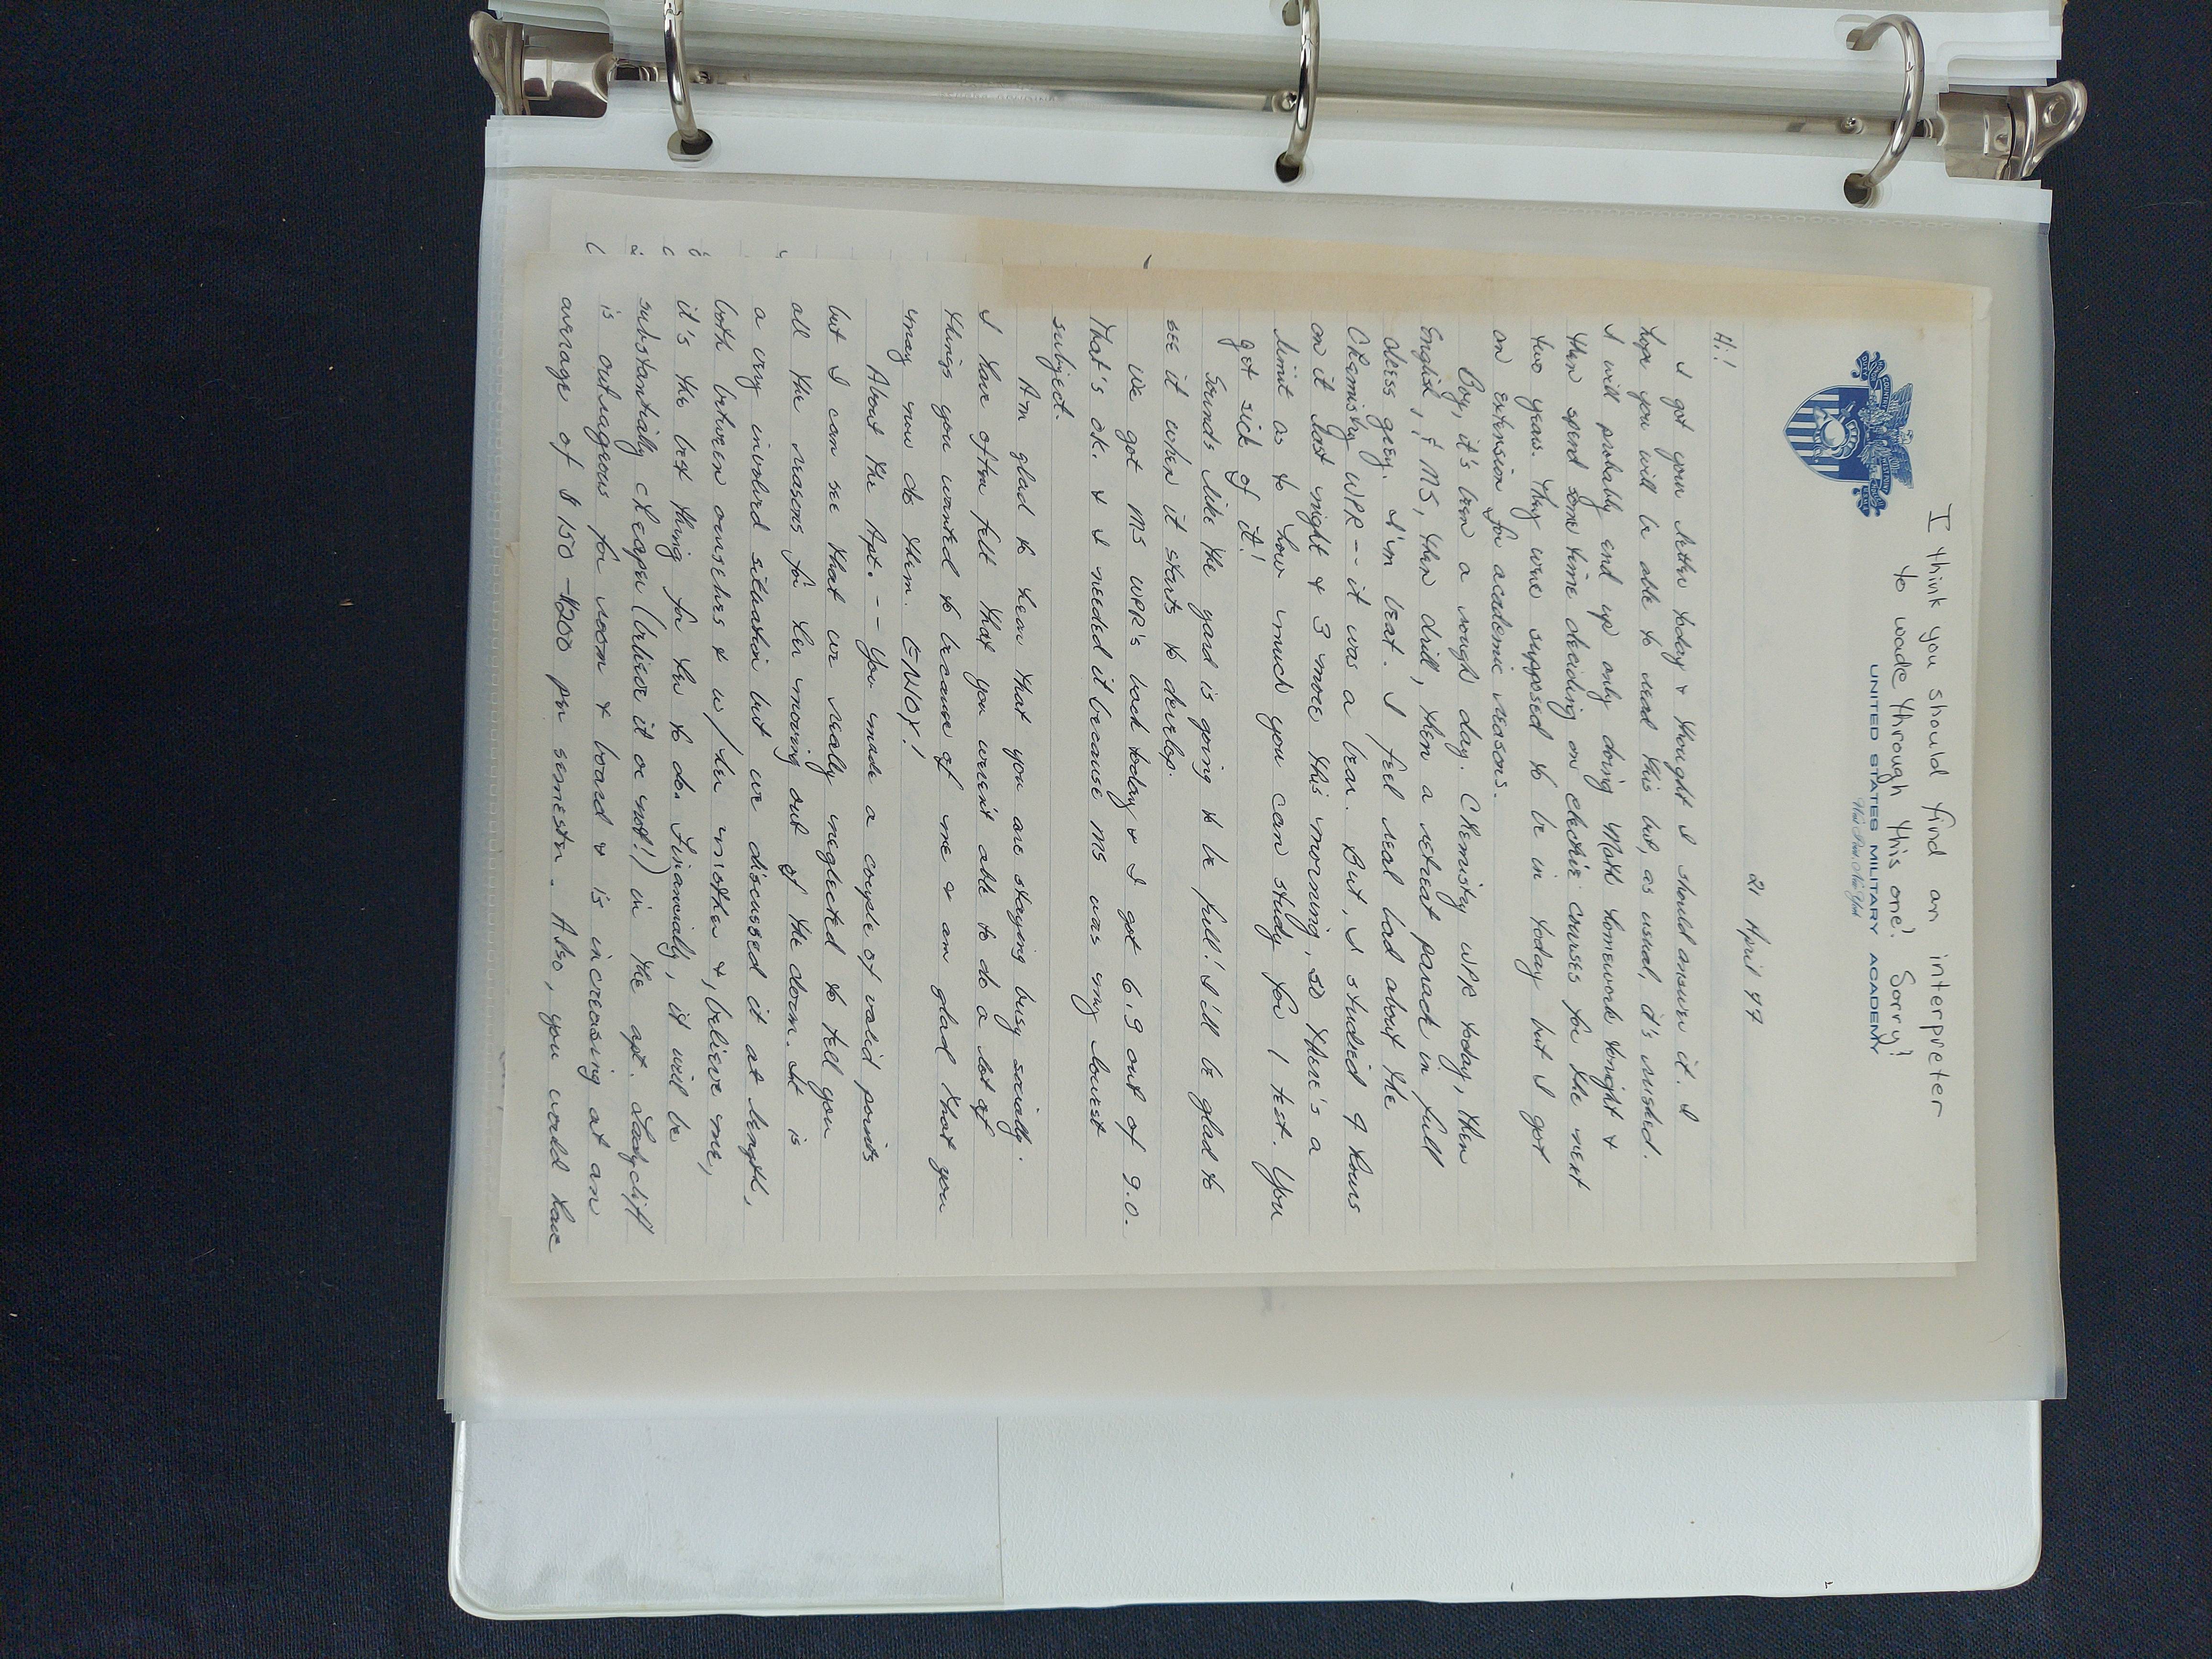 I think you should find an interpreter
to wade through this one! Sorry!
UNITED STATES MILITARY ACADEMY
West Point, New York
DUTY HONOR COUNTRY WEST POINT MDCCCII USMA
21 April 77
Hi!
I got your letter today & thought I should answer it. I
hope you will be able to read this but, as usual, it's rushed.
I will probably end up only doing Math homework tonight &
then spend some time deciding on elective courses for the next
two years. They were supposed to be in today but I got
an extension for academic reasons.
Boy, it's been a rough day. Chemistry WPR today, then
English, & MS, then drill, then a retreat parade in full
dress grey. I'm beat. I feel real bad about the
Chemistry WPR -- it was a bear. But, I studied 9 hours
on it last night & 3 more this morning, so there's a
limit as to how much you can study for 1 test. You
get sick of it!
Sounds like the yard is going to be full! I'll be glad to
see it when it starts to develop.
We got MS WPR's back today & I got 6.9 out of 9.0.
That's ok. & I needed it because MS was my lowest
subject.
Am glad to hear that you are staying busy socially.
I have often felt that you weren't able to do a lot of
things you wanted to because of me & am glad that you
may now do them. ENJOY!
About the Apt. -- You made a couple of valid points
but I can see that we really neglected to tell you
all the reasons for her moving out of the dorm. It is
a very involved situation but we discussed it at length,
both between ourselves & w/ her mother &, believe me,
it's the best thing for her to do. Financially, it will be
substantially cheaper (believe it or not!) in the apt. Ladycliff
is outrageous for room & board & is increasing at an
average of $150-$200 per semester. Also, you would have